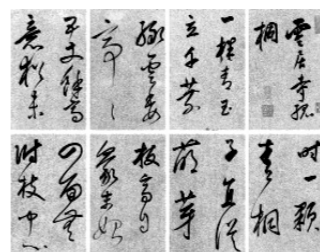 雲居寺孤
桐
一株青玉
立千葉
綠雲委
亭〻
五丈餘高
意猶未
時一顆
青桐
子直從
萌芽
拔高自
毫末始
四面無
附枝中心